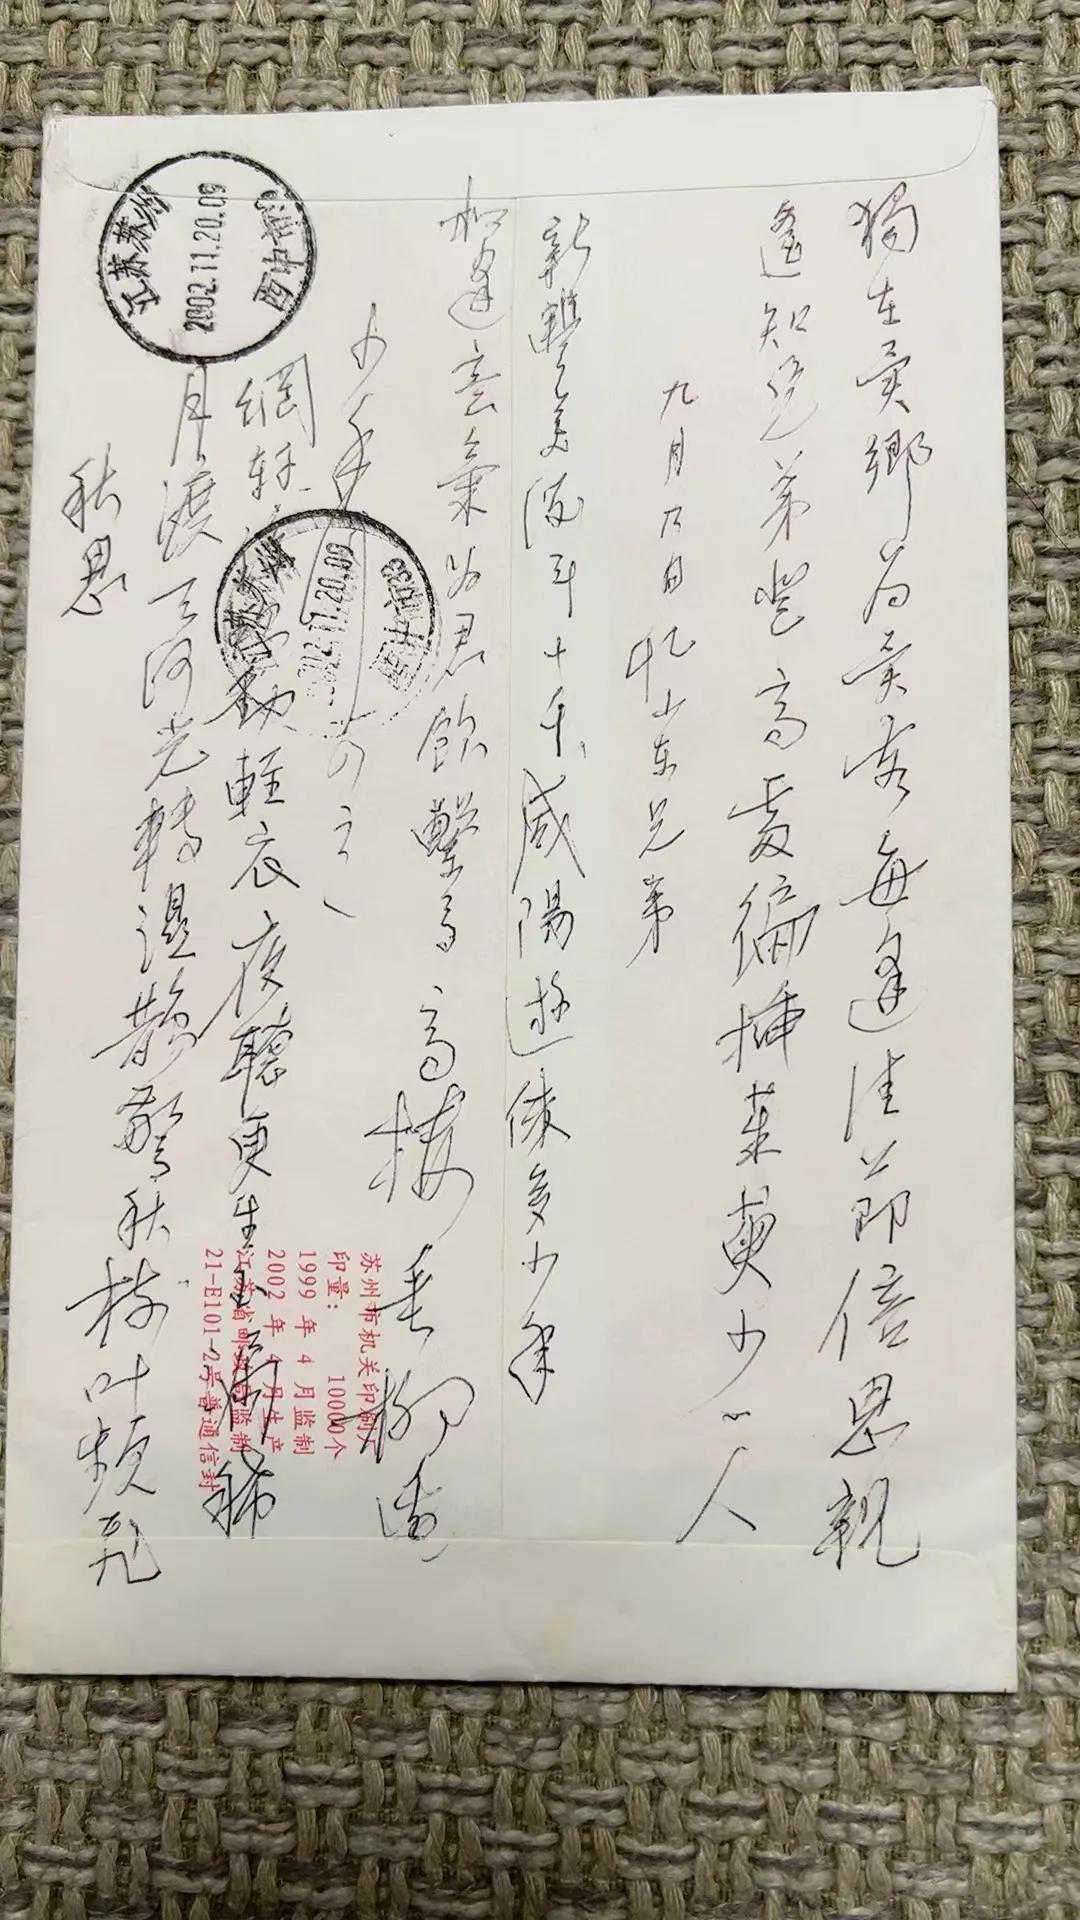 獨在異鄉为異客每逢佳節倍思親
遥知兄弟登高處徧插茱萸少一人
九月九日忆山东兄弟
新豐美酒斗十千咸陽遊俠多少年
相逢意氣为君飲繫馬高楼垂柳邊
少年行之一
網軒涼吹動輕衣夜聽更生玉漏稀
月渡天河光轉濕鵲驚秋樹叶頻飛
秋思
江苏苏州
2002.11.20.09
江苏苏州
2002.11.20.09
苏州市机关印刷厂
印量： 10000个
1999 年 4 月监制
2002 年 4 月生产
江苏省邮政局监制
21-E101-2号普通信封